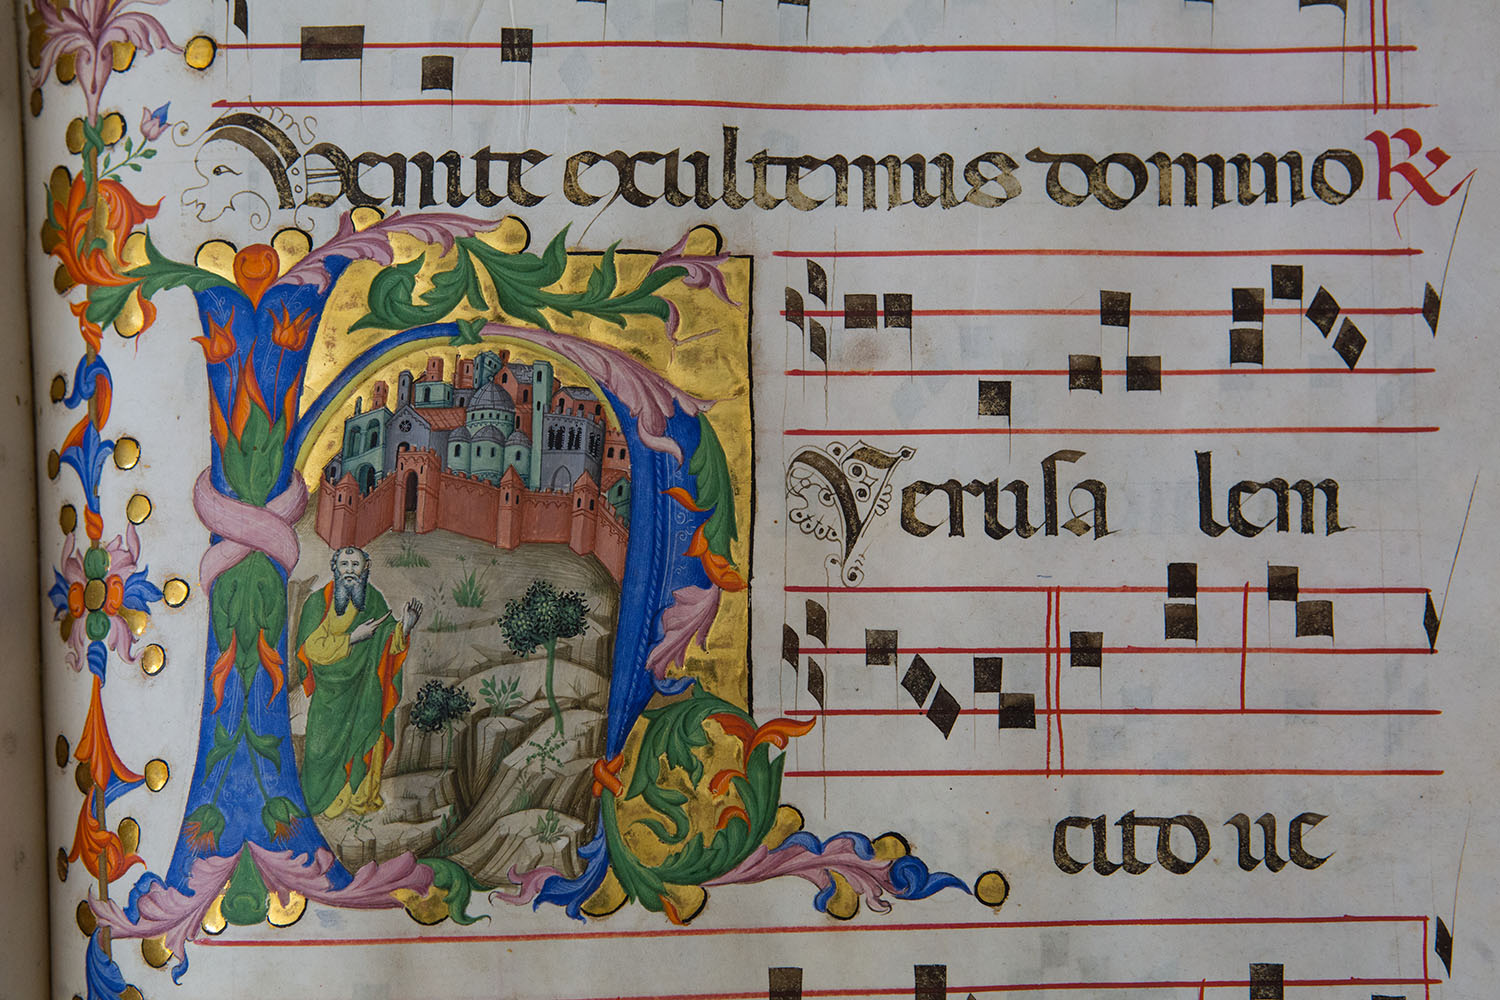 Venite exultemus domino R
Ierusa lem
cito ue